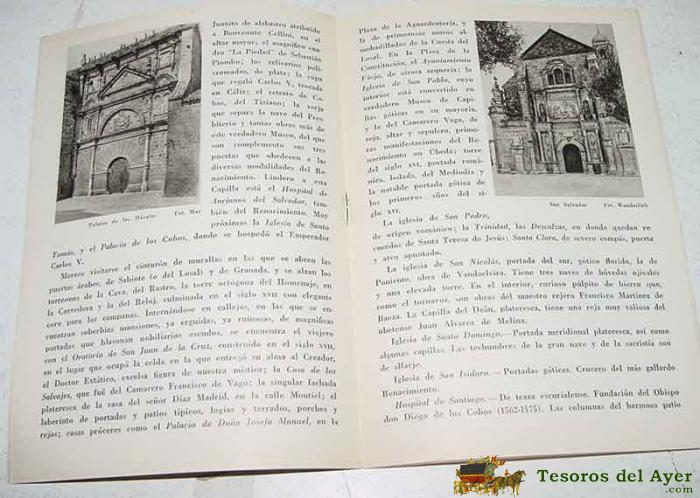 Juanito de alabastro atribuído
a Benvenuto Cellini, en el
altar mayor; el magnífico cua-
dro "La Piedad" de Sebastián
Piombo; los relicarios poli-
cromados, de plata; la copa
que regaló Carlos V, trocada
en Cáliz; el retrato de Co-
bos, del Tiziano; la verja
que separa la nave del Pres-
biterio y tantas obras más de
este verdadero Museo, del que
son complemento sus tres
puertas que obedecen a las
diversas modalidades del Re-
nacimiento. Lindero a esta
Capilla está el Hospital de
Ancianos del Salvador, tam-
bién del Renacimiento. Muy
próximos la Iglesia de Santo
Palacio de los Dávalos Fot. Mas
Tomás, y el Palacio de los Cobos, donde se hospedó el Emperador
Carlos V.
Merece visitarse el cinturón de murallas en las que se abren las
puertas árabes, de Sabiote (o del Losal) y de Granada, y se alzan los
torreones de la Cava, del Rastro, la torre octógona del Homenaje, en
la Corredera y la del Reloj, culminada en el siglo XVII con elegante
coro para las campanas. Internándose en callejas, en las que se en-
cuentran soberbias mansiones, ya erguidas, ya ruinosas, de magníficas
portadas que blasonan nobiliarios escudos, se encuentra el viajero
con el Oratorio de San Juan de la Cruz, construído en el siglo XVII,
en el lugar que ocupó la celda en la que entregó su alma al Creador,
el Doctor Extático, excelsa figura de nuestra mística; la Casa de los
Salvajes, que fué del Camarero Francisco de Vago; la singular fachada
plateresca de la casa del señor Díaz Madrid, en la calle Montiel; el
laberinto de portadas y patios típicos, logias y terrados, porches y
rejas; casas próceres como el Palacio de Doña Josefa Manuel, en la
Plaza de la Aguardentería, y la
de primorosos muros al-
mohadillados de la Cuesta del
Losal. En la Plaza de la
Constitución, el Ayuntamiento
Viejo, de airosa arquería; la
Iglesia de San Pablo, cuyo
interior está convertido en
verdadero Museo de Capi-
llas góticas en su mayoría,
y la del Camarero Vago, de
reja, altar y sepulcro, prime-
ras manifestaciones del Re-
nacimiento en Ubeda; torre
del siglo XVI, portada romá-
nica, Isolada, del Mediodía y
la notable portada gótica de
los primeros años del si-
glo XVI.
San Salvador Fot. Wunderlich
La iglesia de San Pedro,
de origen románico; la Trinidad, las Descalzas, en donde quedan re-
cuerdos de Santa Teresa de Jesús; Santa Clara, de severo compás, puerta
y arco apuntado.
La iglesia de San Nicolás, portada del sur, gótico florido, la de
Poniente, obra de Vandaelvira. Tiene tres naves de bóvedas ojivales
y una elevada torre. En el interior, curioso púlpito de hierro que,
como el tornavoz, son obras del maestro rejero Francisco Martínez de
Baeza. La Capilla del Deán, plateresca, tiene una reja muy valiosa del
ubetense Juan Alvarez de Molina.
Iglesia de Santo Domingo.—Portada meridional plateresca, así como
algunas capillas. Las techumbres de la gran nave y de la sacristía son
de alfarje.
Iglesia de San Isidoro.—Portadas góticas. Crucero del más gallardo
Renacimiento.
Hospital de Santiago.—De traza escurialense. Fundación del Obispo
don Diego de los Cobos (1562-1575). Las columnas del hermoso patio
Tesoros del Ayer
.com